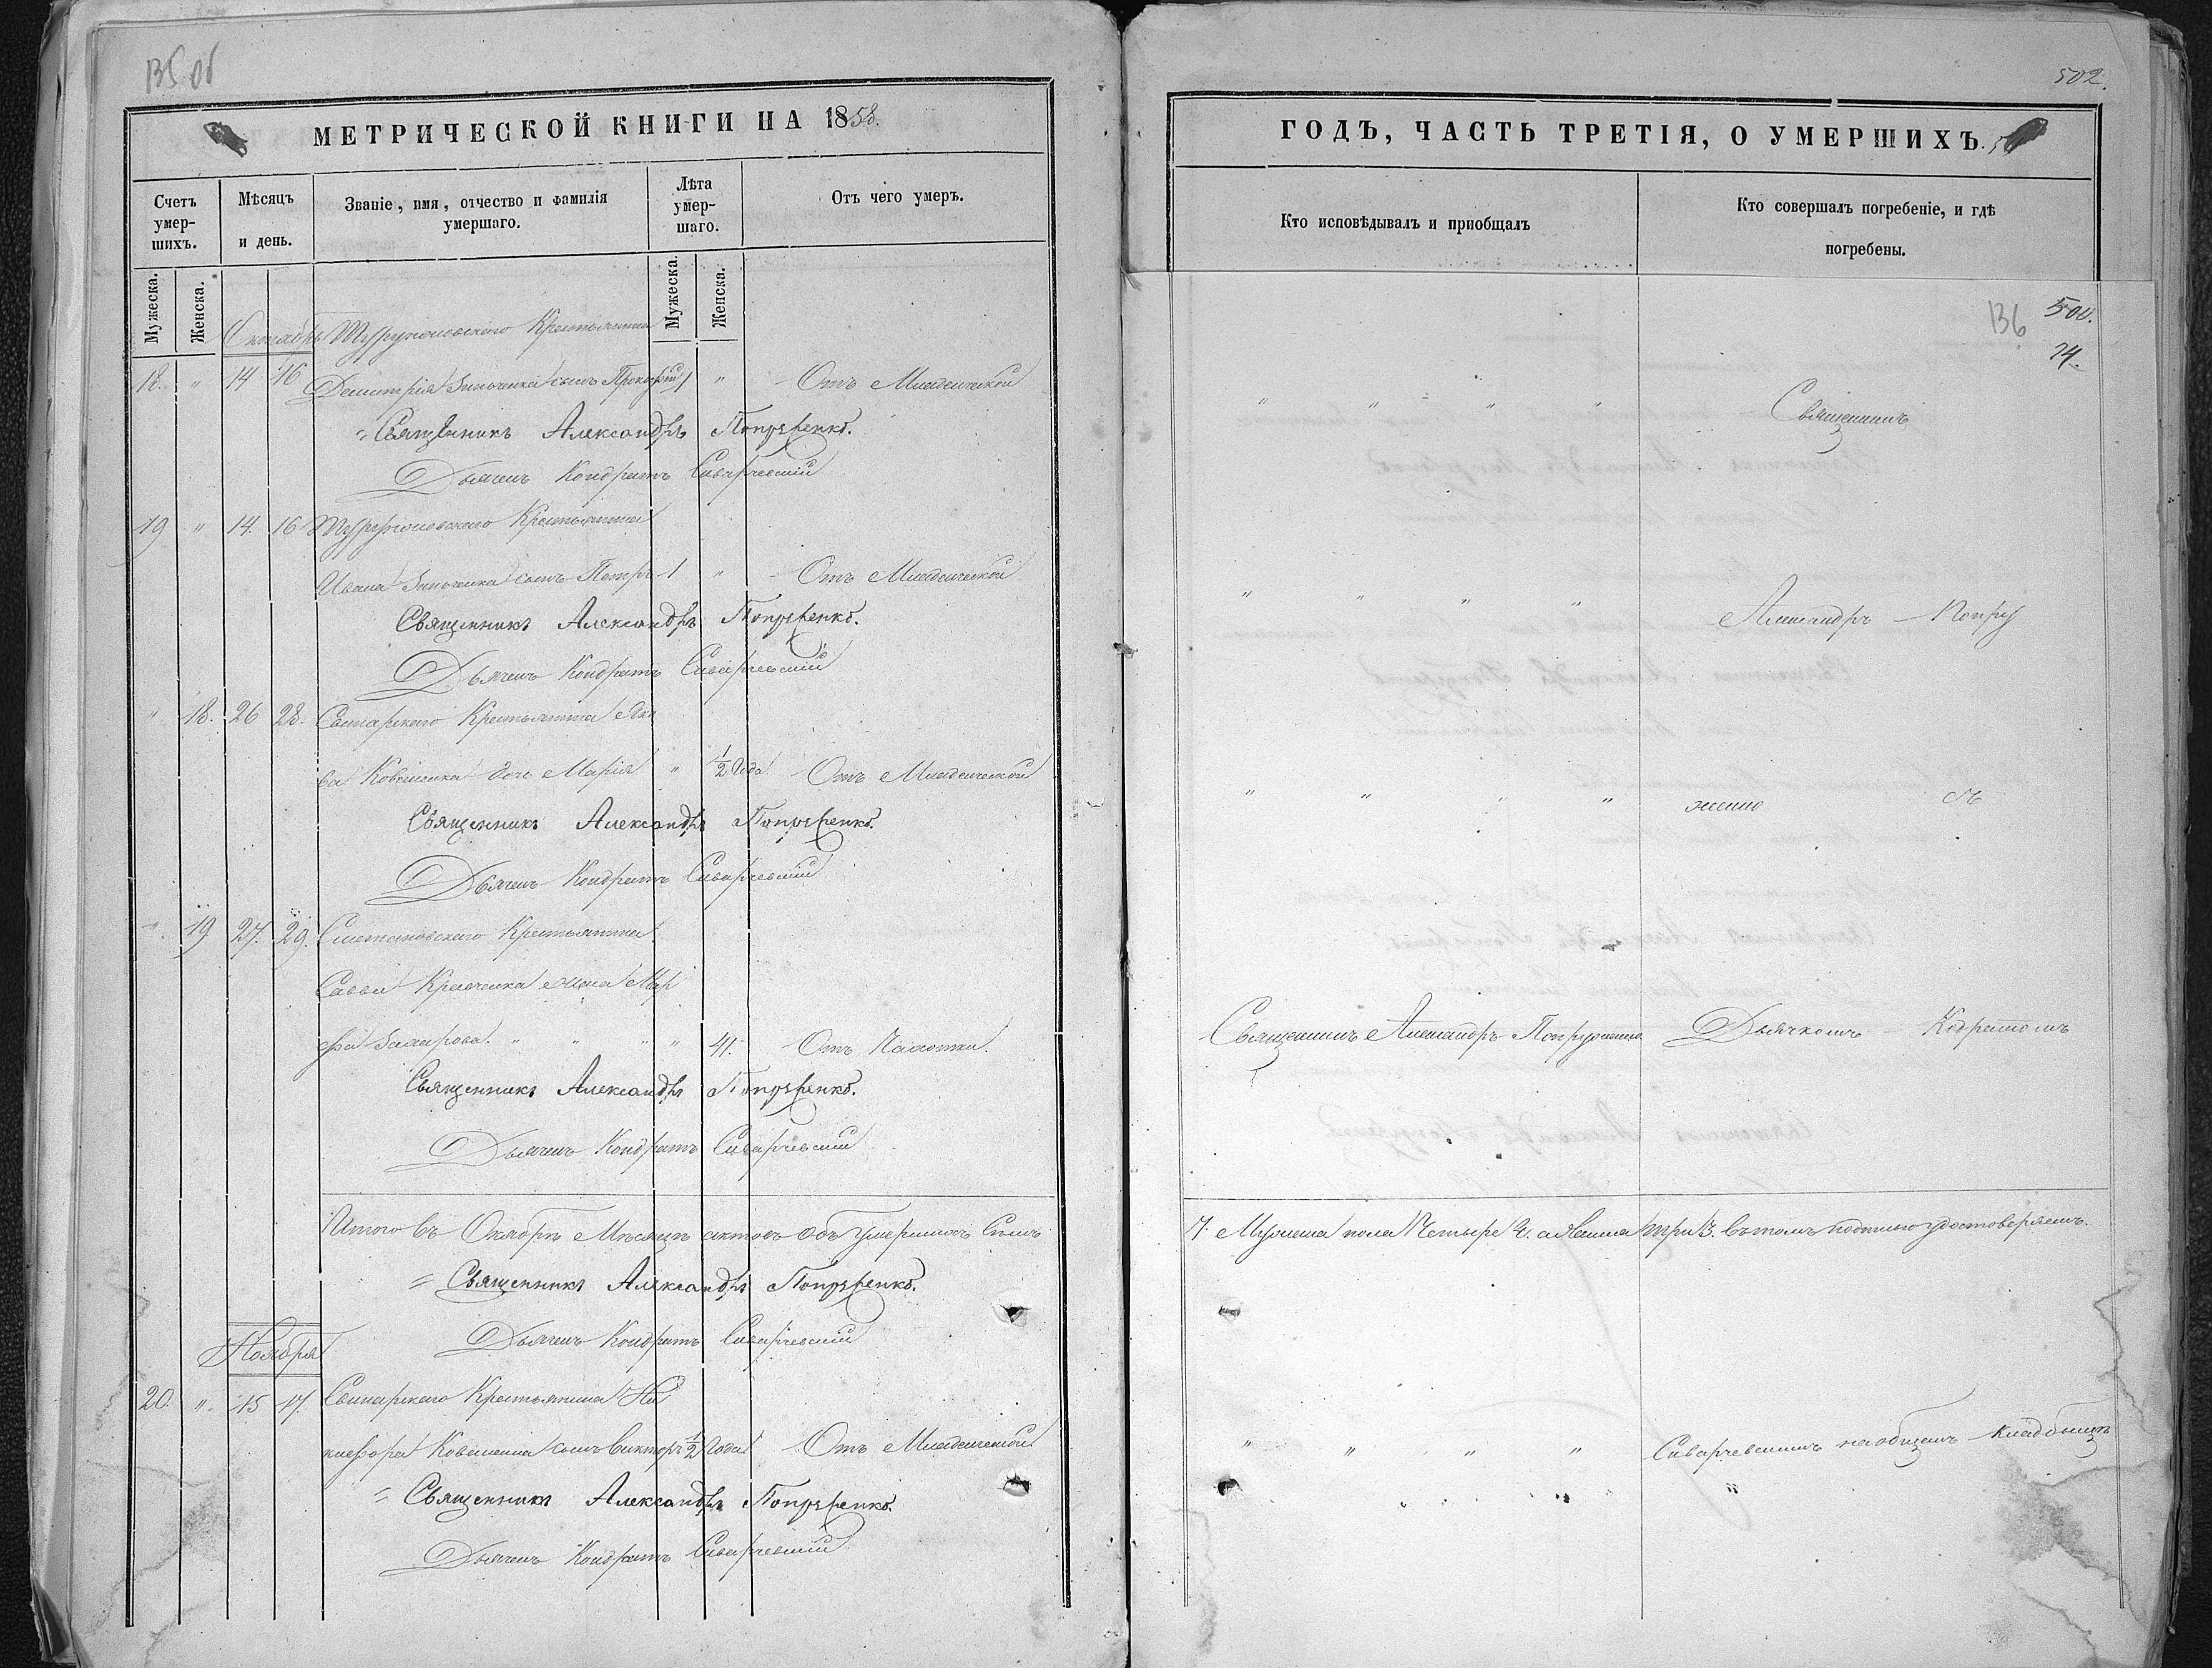 135 об
МЕТРИЧЕСКОЙ КНИГИ НА 1858.
Счетъ умер-шихъ.
Мѣсяцъ и день.
Званіе, имя, отчество и фамилія умершаго.
Лѣта умер-шаго.
Отъ чего умеръ.
Мужеска.
Женска.
Мужеска.
Женска.
Октябрь Крестьянина
18. " 14 16 Димитрія Зинченка сынъ Прокофій 1 " Отъ Младенческой
Священникъ Александръ Попруженко.
Дьячекъ Кондратъ Сиварчевскій
19 " 14. 16 Крестьянина
Ивана Зинченка сынъ Петръ 1 " Отъ Младенческой
Священникъ Александръ Попруженко.
Дьячекъ Кондратъ Сиварчевскій
" 18. 26 28. Свинарскаго Крестьянина Яко
ва дочь Марія " 1/2 Года Отъ Младенческой
Священникъ Александръ Попруженко.
Дьячекъ Кондратъ Сиварчевскій
" 19 27. 29. Сметановскаго Крестьянина
Саввы Кравченка жена Мар
фа Захарова. " " " " 41. Отъ Чахотки.
Священникъ Александръ Попруженко.
Дьячекъ Кондратъ Сиварчевскій
Итого въ Октябрѣ Мѣсяцѣ актовъ объ умершихъ Семь
Священникъ Александръ Попруженко.
Дьячекъ Кондратъ Сиварчевскій
Ноября
20. " 15 17. Свинарскаго Крестьянина Ни
кифора сынъ Викторъ 1/2 Года Отъ Младенческой
Священникъ Александръ Попруженко.
Дьячекъ Кондратъ Сиварчевскій
502.
ГОДЪ, ЧАСТЬ ТРЕТІЯ, О УМЕРШИХЪ.
Кто исповѣдывалъ и пріобщалъ
Кто совершалъ погребеніе, и гдѣ погребены.
136 500.
74.
" " " " Священникъ
" " " " Александръ Попру
" " " " женко съ
Священникъ Александръ Попруженко. Дьячкомъ Кодратомъ
7. Мужеска пола Четыре 4. а женска три 3. въ томъ подписью удостовѣряемъ.
" " " " Сиварчевскимъ на общемъ кладбищѣ